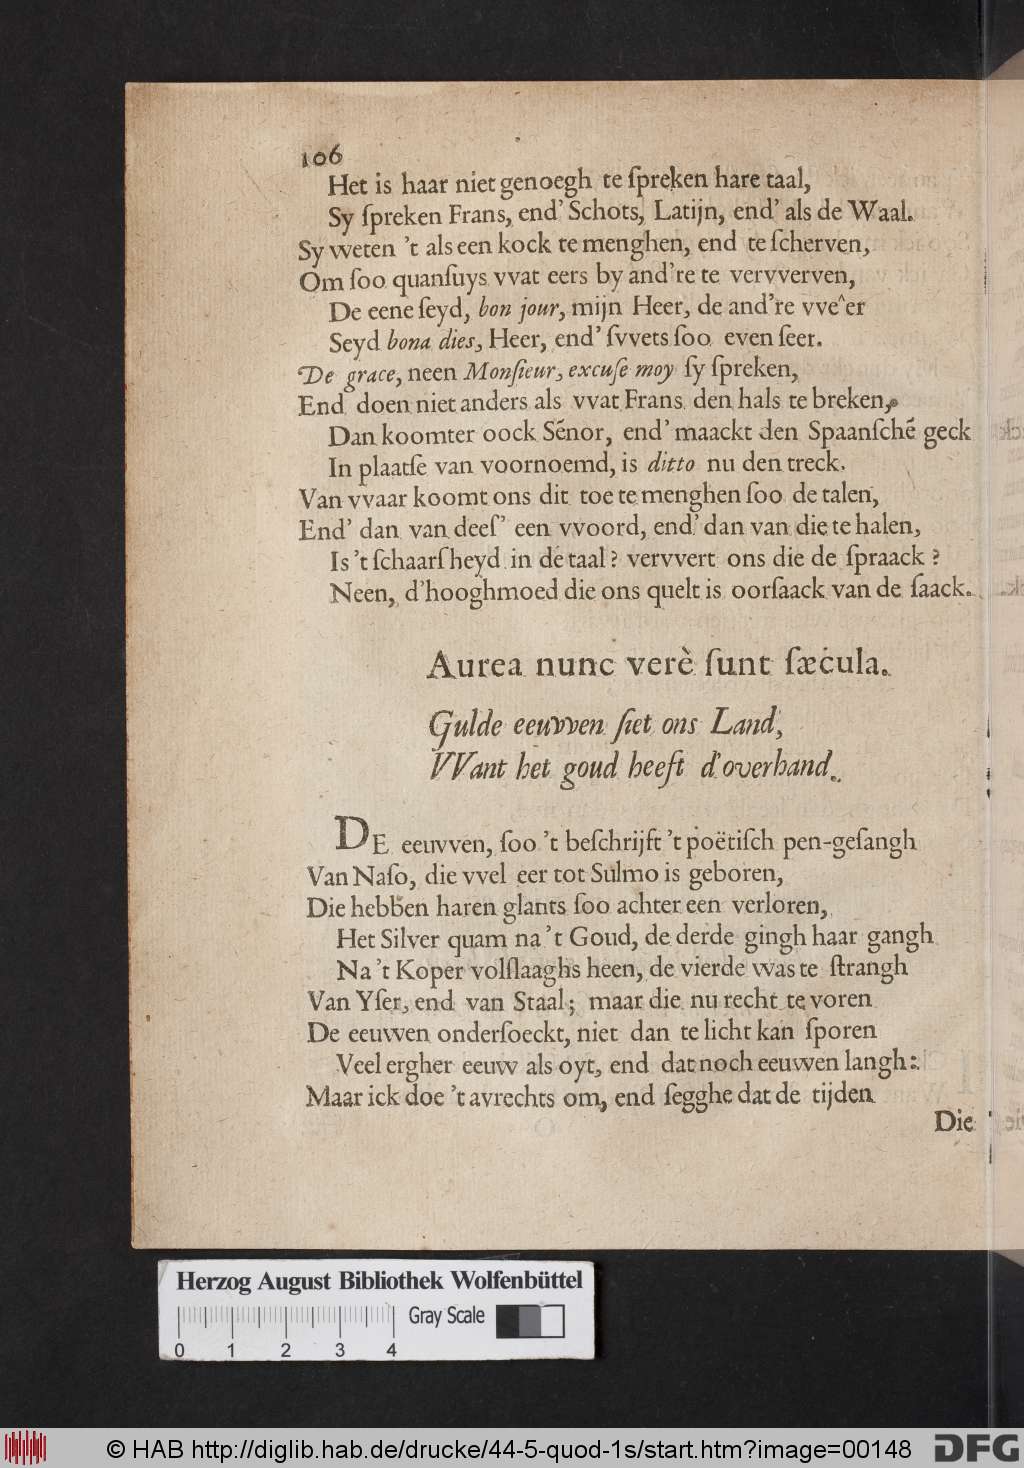 106
Het is haar niet genoegh te ſpreken hare taal,
Sy ſpreken Frans, end' Schots, Latijn, end' als de Waal.
Sy weten 't als een kock te menghen, end te ſcherven,
Om ſoo quanſuys vvat eers by and're te vervverven,
De eene ſeyd, bon jour, mijn Heer, de and're vveer
Seyd bona dies, Heer, end' ſvvets ſoo even ſeer.
De grace, neen Monſieur, excuſe moy ſy ſpreken,
End doen niet anders als vvat Frans den hals te breken,
Dan koomter oock Sẽnor, end' maackt den Spaanſchẽ geck
In plaatſe van voornoemd, is ditto nu den treck.
Van vvaar koomt ons dit toe te menghen ſoo de talen,
End' dan van deeſ' een vvoord, end' dan van die te halen,
Is 't ſchaarſheyd in de taal? vervvert ons die de ſpraack?
Neen, d'hooghmoed die ons quelt is oorſaack van de ſaack.
Aurea nunc verè ſunt ſæcula.
Gulde eeuvven ſiet ons Land,
VVant het goud heeft d'overhand.
DE eeuvven, ſoo 't beſchrijft 't poëtiſch pen-geſangh
Van Naſo, die vvel eer tot Sulmo is geboren,
Die hebben haren glants ſoo achter een verloren,
Het Silver quam na 't Goud, de derde gingh haar gangh
Na 't Koper volſlaaghs heen, de vierde was te ſtrangh
Van Yſer, end van Staal; maar die nu recht te voren
De eeuwen onderſoeckt, niet dan te licht kan ſporen
Veel ergher eeuw als oyt, end dat noch eeuwen langh:
Maar ick doe 't avrechts om, end ſegghe dat de tijden
Die
Herzog August Bibliothek Wolfenbüttel
Gray Scale
0 1 2 3 4
© HAB http://diglib.hab.de/drucke/44-5-quod-1s/start.htm?image=00148
DFG